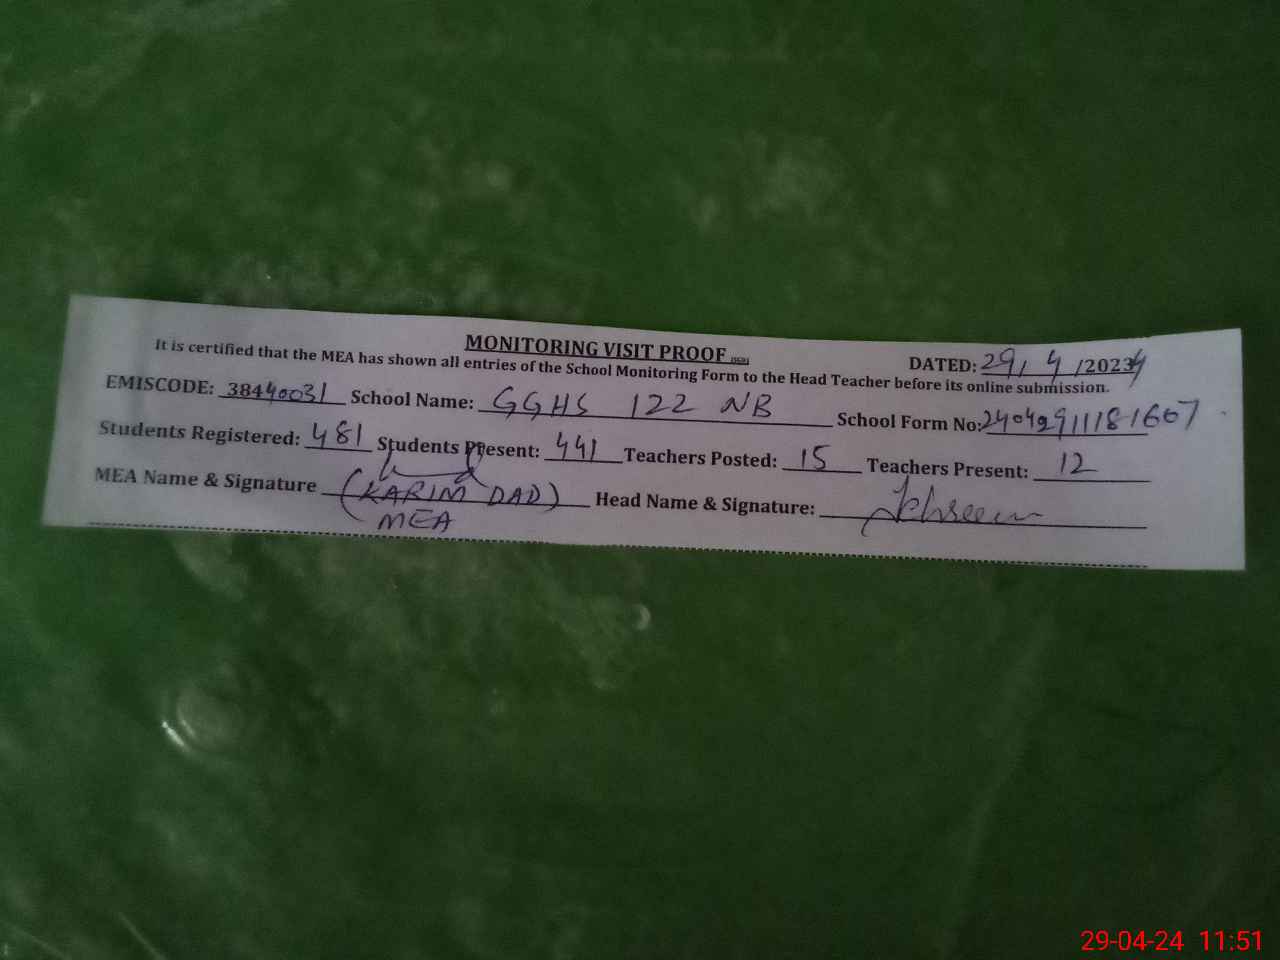 MONITORING VISIT PROOF
DATED: 29, 4 /20234
It is certified that the MEA has shown all entries of the School Monitoring Form to the Head Teacher before its online submission.
EMISCODE: 38440031 School Name: GGHS 122 NB School Form No: 24042911181607
Students Registered: 481 Students Present: 441 Teachers Posted: 15 Teachers Present: 12
MEA Name & Signature (KARIM DAD) Head Name & Signature:
MEA
29-04-24 11:51